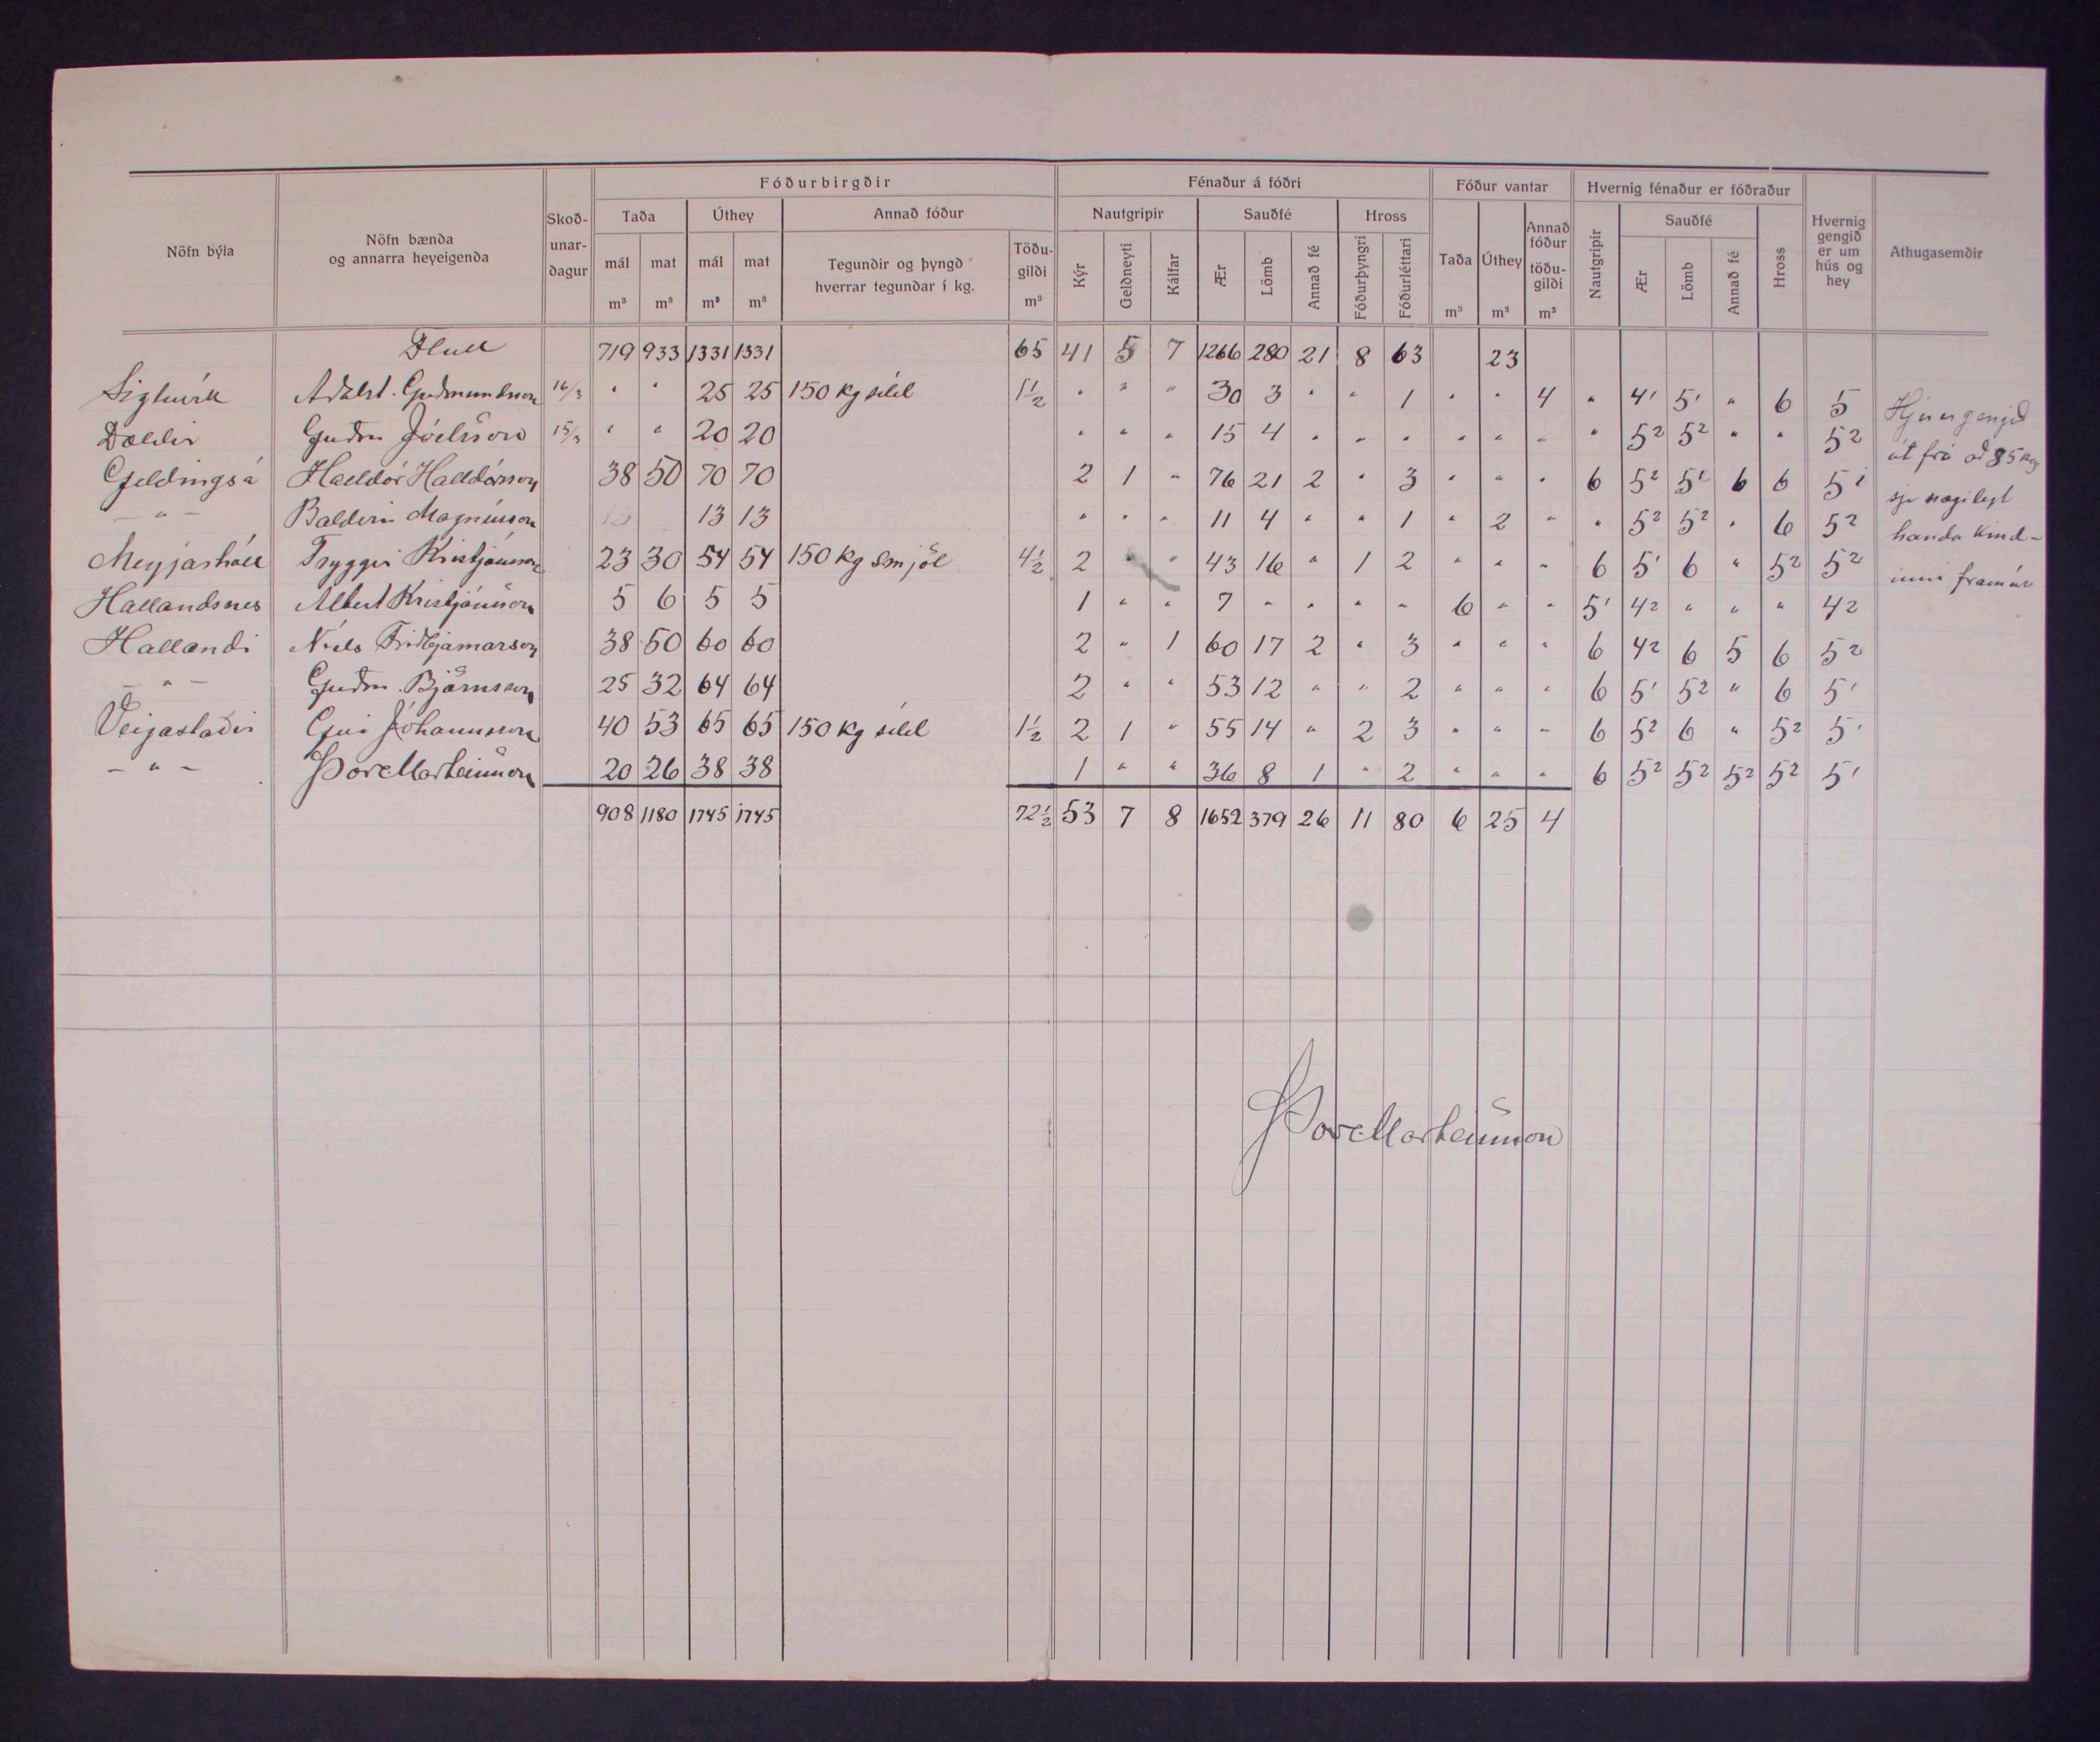 Fóðurbirgðir Fénaður á fóðri Fóður vantar Hvernig fénaður er fóðraður
Nöfn býla Nöfn bænda og annarra heyeigenda Skoðunardagur Taða Úthey Annað fóður Nautgripir Sauðfé Hross Taða Úthey Annað fóður töðugildi Nautgripir Sauðfé Hross Hvernig gengið er um hús og hey Athugasemdir
mál mat mál mat Tegundir og þyngd hverrar tegundar í kg. Töðugildi Kýr Geldneyti Kálfar Ær Lömb Annað fé Fóðurþyngri Fóðurléttari Ær Lömb Annað fé
m³ m³ m³ m³ m³ m³ m³ m³
Flutt 719 933 1331 1331 65 41 5 7 1266 280 21 8 63 23
Sigluvík Aðalst. Guðmundsson 16/3 " " 25 25 150 kg síld 1½ " " " 30 3 " " 1 " " 4 " 4¹ 5¹ " 6 5
Dældir Guðm Jóelsson 15/3 " " 20 20 " " " 15 4 " " " " " " " 5² 5² " " 5²
Geldingsá Halldór Halldórsson 38 50 70 70 2 1 " 76 21 2 " 3 " " " 6 5² 5¹ 6 6 5¹
– " – Baldvin Magnússon 13 13 " " " 11 4 " " 1 " 2 " " 5² 5² " 6 5²
Meyjarhóll Tryggvi Kristjánsson 23 30 54 54 150 kg smjöl 4½ 2 " " 43 16 " 1 2 " " " 6 5¹ 6 " 5² 5²
Hallandsnes Albert Kristjánsson 5 6 5 5 1 " " 7 " " " " 6 " " 5¹ 4² " " " 4²
Hallandi Níels Friðbjarnarson 38 50 60 60 2 " 1 60 17 2 " 3 " " " 6 4² 6 5 6 5²
– " – Guðm. Björnsson 25 32 64 64 2 " " 53 12 " " 2 " " " 6 5¹ 5² " 6 5¹
Veigastaðir Jóhannsson 40 53 65 65 150 kg síld 1½ 2 1 " 55 14 " 2 3 " " " 6 5² 6 " 5² 5¹
– " – Þor Marteinsson 20 26 38 38 1 " " 36 8 1 " 2 " " " 6 5² 5² 5² 5² 5¹
908 1180 1745 1745 72½ 53 7 8 1652 379 26 11 80 6 25 4
Hjer er gengið
út frá að 85 kg
sje nægilegt
handa kind-
inni framúr
Þor Marteinsson